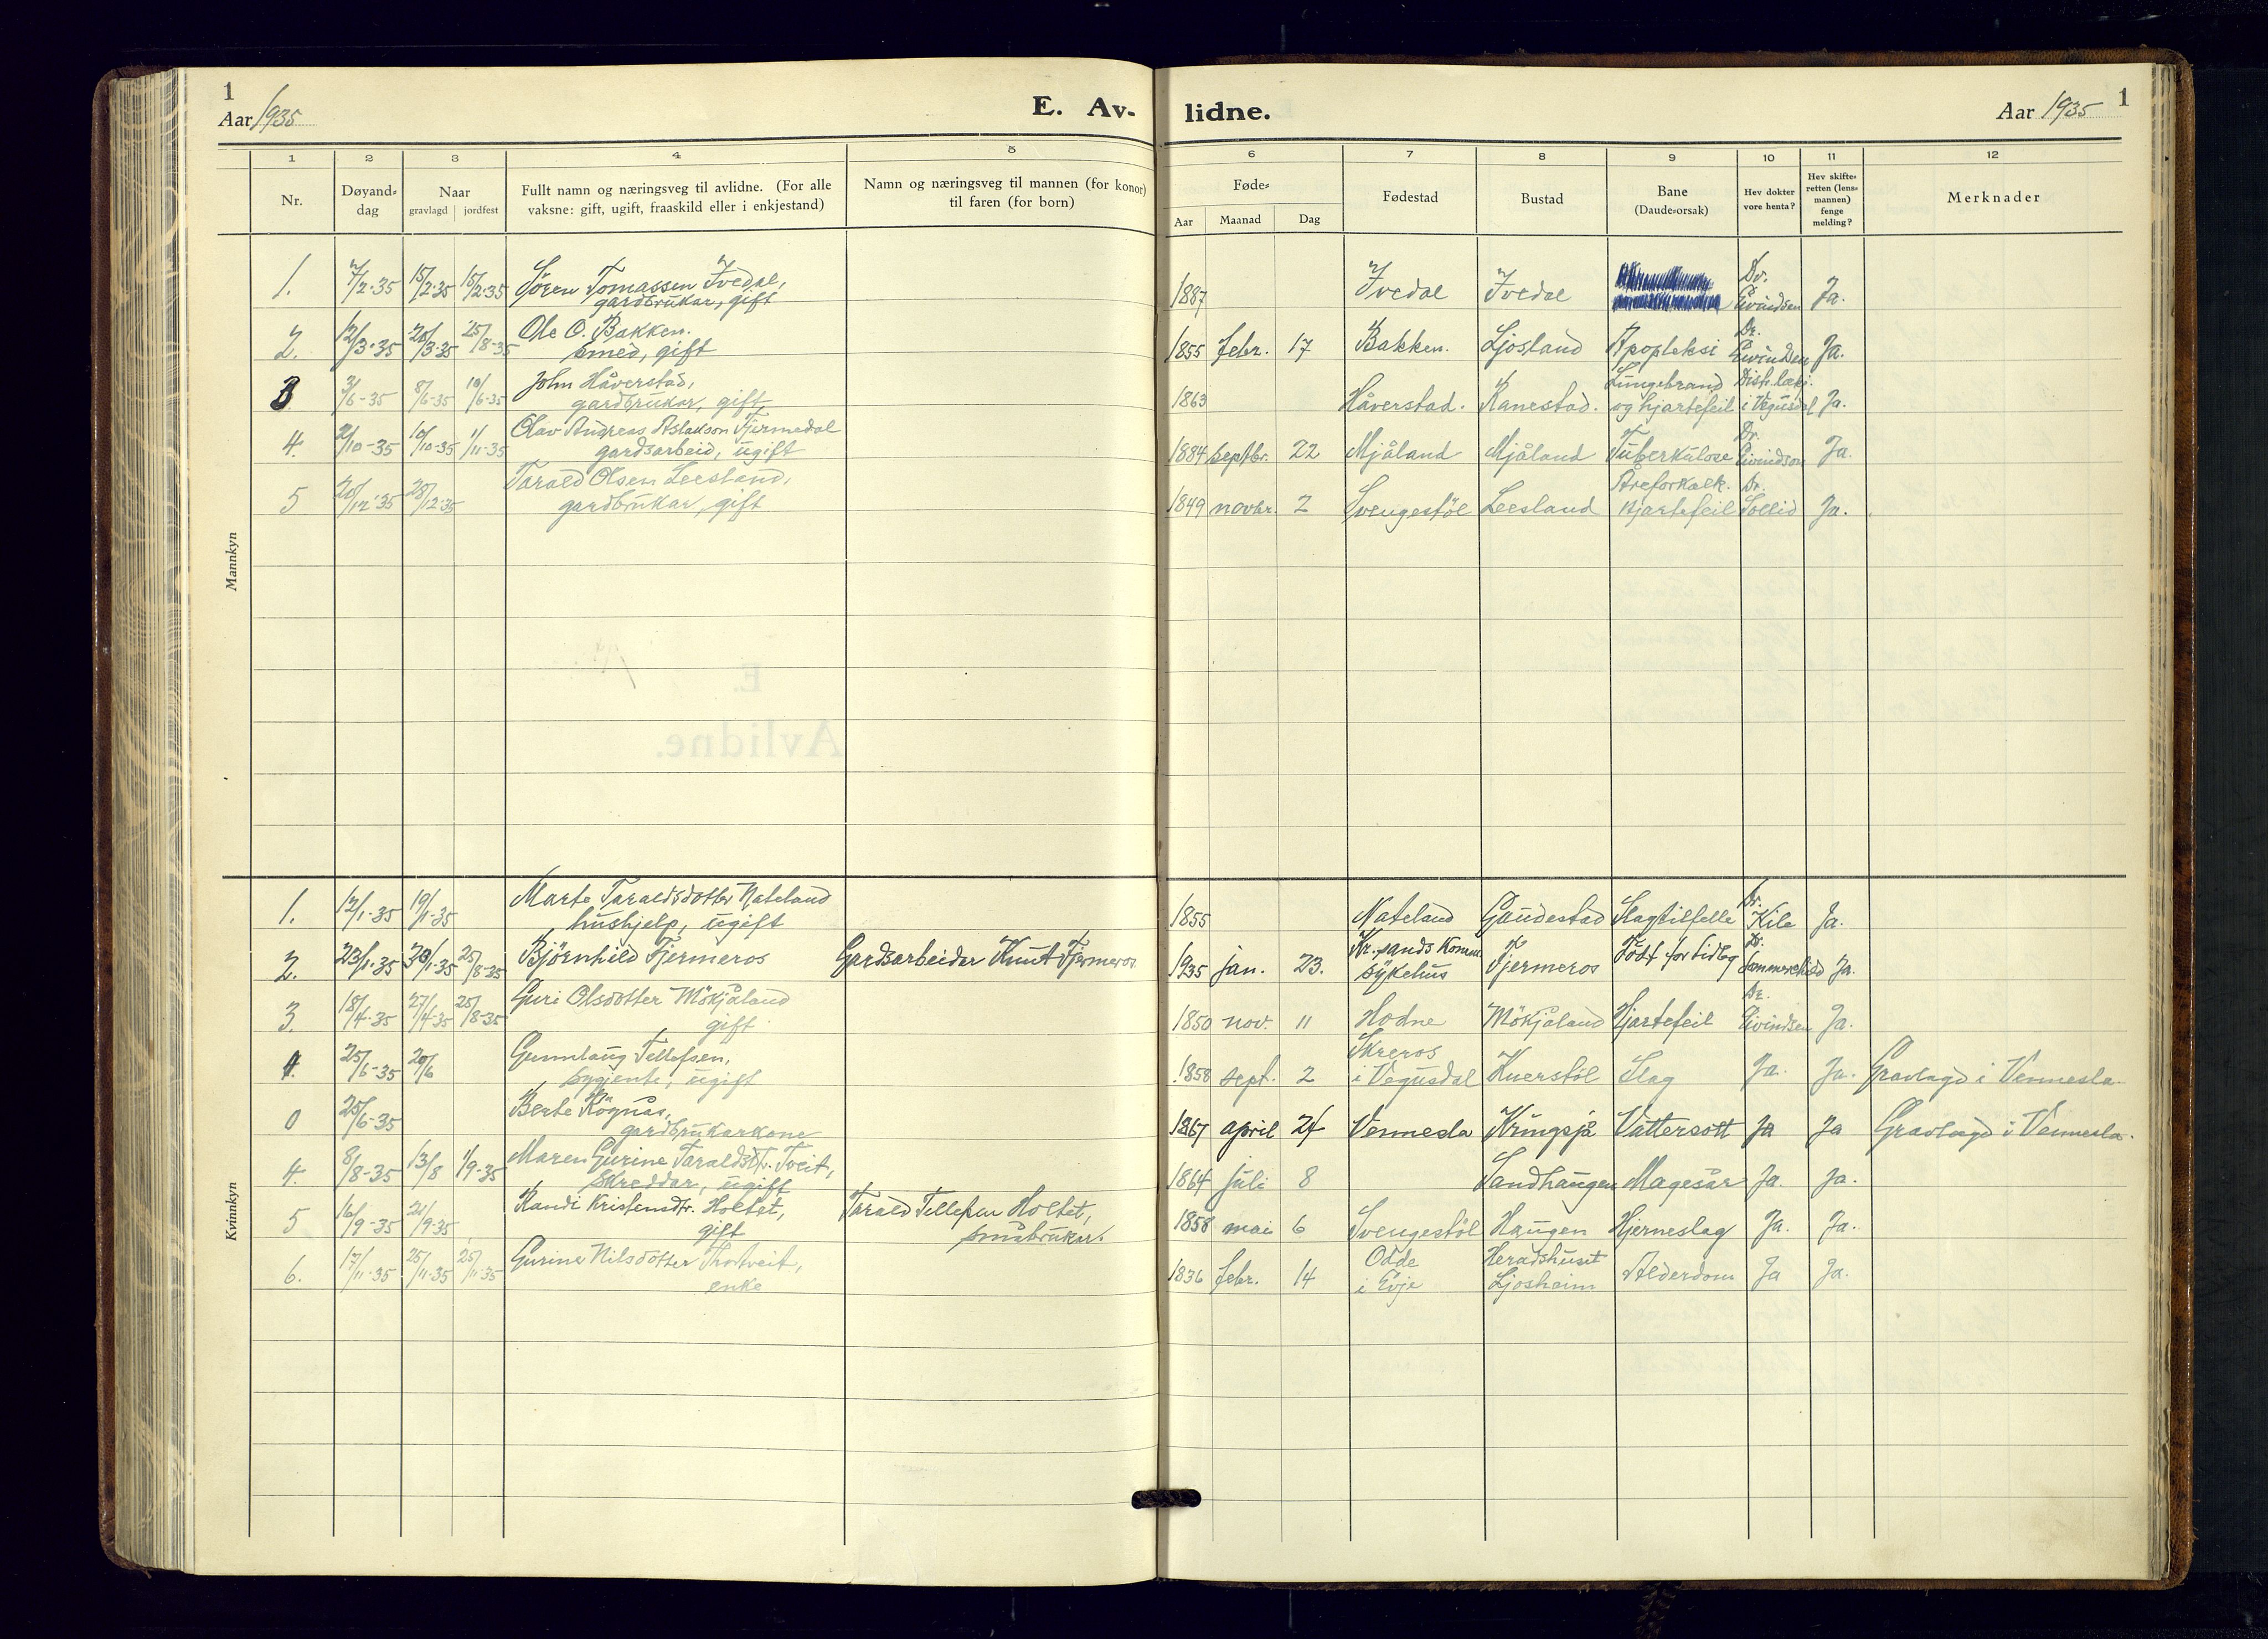 1
Aar 1935
E. Av-
lidne.
Aar 1935
1
1 2 3 4 5 6 7 8 9 10 11 12
Nr.
Døyand-
dag
Naar
gravlagd jordfest
Fullt namn og næringsveg til avlidne. (For alle
vaksne: gift, ugift, fraaskild eller i enkjestand)
Namn og næringsveg til mannen (for konor)
til faren (for born)
Føde-
Aar Maanad Dag
Fødestad
Bustad
Bane
(Daude-orsak)
Hev dokter
vore henta?
Hev skifte-
retten (lens-
mannen)
fenge
melding?
Merknader
Mannkyn
1. 7/2-35 15/2-35 15/2-35 Sören Tomassen Ivedal,
gardbrukar, gift
1887 Ivedal Ivedal Dr. Eivindsen Ja.
2. 12/3-35 20/3-35 25/8-35 Ole O. Bakken.
smed, gift
1855 febr. 17 Bakken. Ljosland Apopleksi Dr. Eivindsen Ja.
3 3/6-35 8/6-35 10/6-35 John Håverstad,
gardbrukar, gift
1863 Håverstad. Ranestad. Lungebrand
og hjartefeil Distr.læki.
i Vegusdal Ja.
4. 2/10-35 10/10-35 1/11-35 Olav Andreas Aslakson Fjermedal
gardsarbeid, ugift
1884 septbr. 22 Mjåland Mjåland Tuberkulose Dr. Eivindson Ja.
5 20/12-35 28/12-35 Tarald Olsen Leesland,
gardbrukar, gift
1849 novbr. 2 Svengestöl Leesland Åreforkalk.
Hjartefeil Dr. Sollid Ja.
Kvinnkyn
1. 12/1-35 19/1-35 Marte Taraldsdotter Nateland
hushjelp, ugift
1855 Nateland Gaudestad Slagtilfelle Dr. Kile Ja.
2. 23/1-35 29/1-35 25/8-35 Bjørnhild Fjermeros Gardsarbeider Knut Fjermeros
1935 jan. 23. Kr.sands Komm.
sykehus Fjermeros Födt for tidleg Dr. Ja.
3. 18/4-35 27/4-35 25/8-35 Guri Olsdotter Mökjåland
gift
1850 nov. 11 Hodne Mökjåland Hjartefeil Dr. Eivindsen Ja.
4. 25/6-35 29/6 Gunnlaug Tellefsen,
sygjente, ugift
1858 sept. 2 Skreros
i Vegusdal Kuerstöl Slag Ja. Ja. Gravlagd i Vennesla.
0 25/6-35 Berte Rögnås,
gardbrukarkone
1867 april 24 Vennesla Kringsjå Vattersott Ja Ja Gravlagd i Vennesla.
4. 8/8-35 13/8 1/9-35 Maren Gurine Taraldsdtr. Tveit,
skreddar, ugift
1864 juli 8 Sandhaugen Magesår Ja. Ja.
5 16/9-35 21/9-35 Randi Kristensdtr. Holtet,
gift
Tarald Tellefsen Holtet,
småbrukar.
1858 mai 6 Svengestöl Haugen Hjerneslag Ja. Ja.
6. 17/11-35 25/11-35 25/11-35 Gurine Nilsdotter Thortveit,
enke
1836 febr. 14 Odde
i Evje Heradshuset
Ljosheim Alderdom Ja Ja.